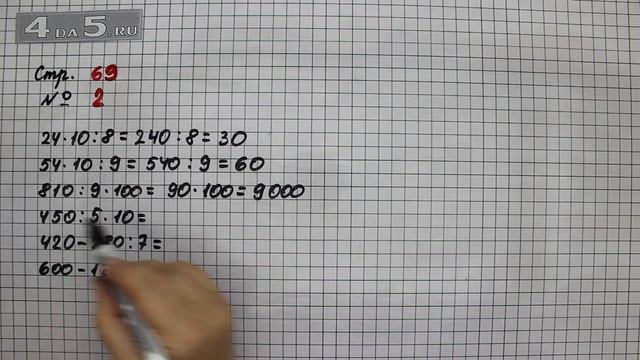 4DA5.RU
Стр. 69
№ 2
24·10:8=240:8=30
54·10:9=540:9=60
810:9·100=90·100=9000
450:5·10=
420- :7=
600-